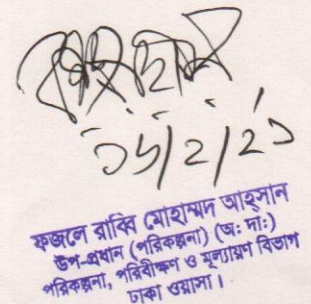 ১৬/২/২১
ফজলে রাব্বি মোহাম্মদ আহ্‌সান
উপ-প্রধান (পরিকল্পনা) (অ: দা:)
পরিকল্পনা, পরিবীক্ষণ ও মূল্যায়ণ বিভাগ
ঢাকা ওয়াসা।